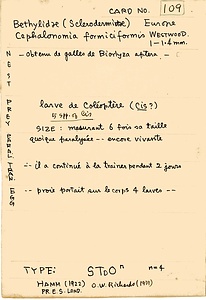 CARD NO. 109
Bethylidae (Sclerodermidae) Europe
Cephalonomia formiciformis WESTWOOD.
1-1.4 mm.
NEST
- obtenu de galles de Biorhyza aptera -
PREY
larve de Coléoptère (Cis?)
5 spp. of Cis
SIZE: mesurant 6 fois sa taille
quoique paralysée -- encore vivante
-- il a continué à la trainer pendant 2 jours
EGG
-- proie portait sur le corps 4 larves --
TYPE: STOOⁿ n=4
HAMM (1922) O.W. Richards (1939)
PR.E.S. LOND.